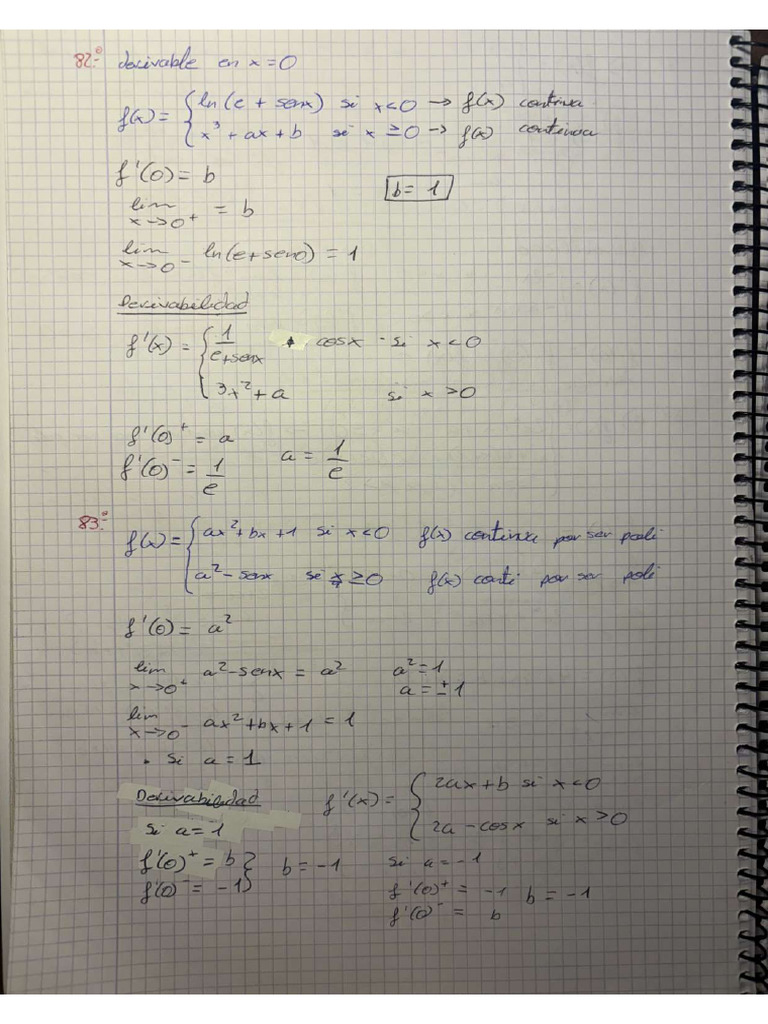 82.º derivable en x=0
f(x) = { ln(e + senx) si x<0 → f(x) continua
x³ + ax + b si x ≥0 → f(x) continua
f'(0) = b
b = 1
lim x→0⁺ = b
lim x→0⁻ ln(e+sen0) = 1
Derivabilidad
f'(x) = { 1/(e+senx) · cosx si x<0
3x² + a si x >0
f'(0)⁺ = a
f'(0)⁻ = 1/e
a = 1/e
83.º
f(x) = { ax²+bx+1 si x<0 f(x) continua por ser poli
a² - senx si x ≥0 f(x) conti por ser poli
f'(0) = a²
lim x→0⁺ a²-senx = a² a²=1
a = ±1
lim x→0⁻ ax²+bx+1 = 1
• Si a = 1
Derivabilidad
f'(x) = { 2ax+b si x<0
2a - cosx si x >0
Si a=1
f'(0)⁺ = b } b = -1
f'(0)⁻ = -1
si a = -1
f'(0)⁺ = -1 b = -1
f'(0)⁻ = b